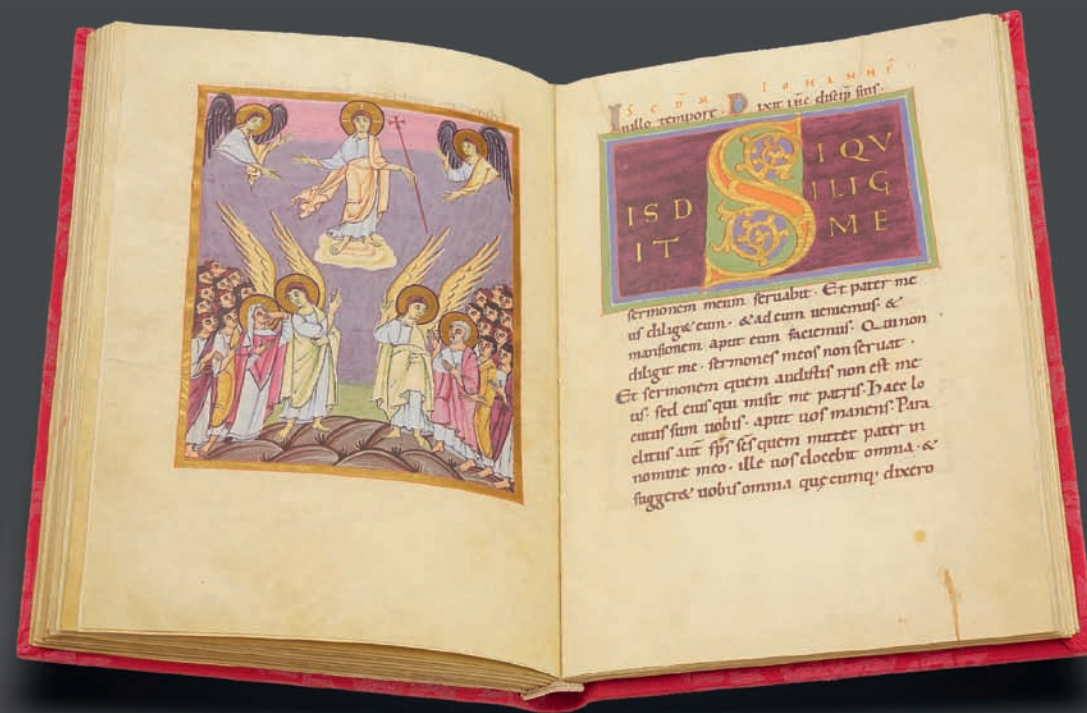 SCDM IOHANNĒ
In illo tempore. Dixit ihc discip suis.
SI QV
IS D ILIG
IT ME
sermonem meum seruabit. Et pater me
us dilig& eum. & ad eum ueniemus. &
mansionem aput eum faciemus. Qui non
diligit me. sermones meos non seruat.
Et sermonem quem audistis non est me
us. sed eius qui misit me patris. Haec lo
cutus sum uobis. aput uos manens. Para
clitus aut sps scs quem mittet pater in
nomine meo. ille uos docebit omnia. &
sugger& uobis omnia quęcumq. dixero